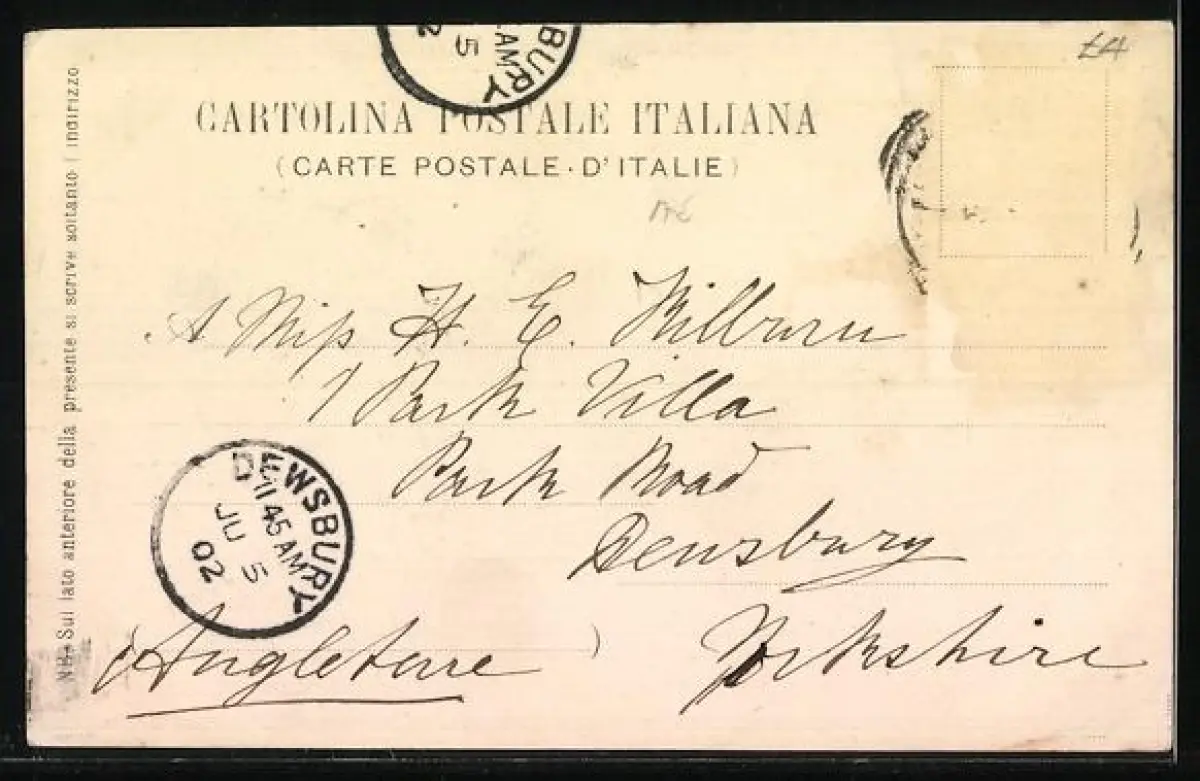 BURY
AM
5
2
£4
CARTOLINA POSTALE ITALIANA
(CARTE POSTALE·D'ITALIE)
A Miss H. E. Wilburn
1 Park Villa
Park Road
Dewsbury
Yorkshire
(Angleterre)
DEWSBURY
11 45 AM
JU 5
02
NB. Sul lato anteriore della presente si scrive soltanto l'indirizzo